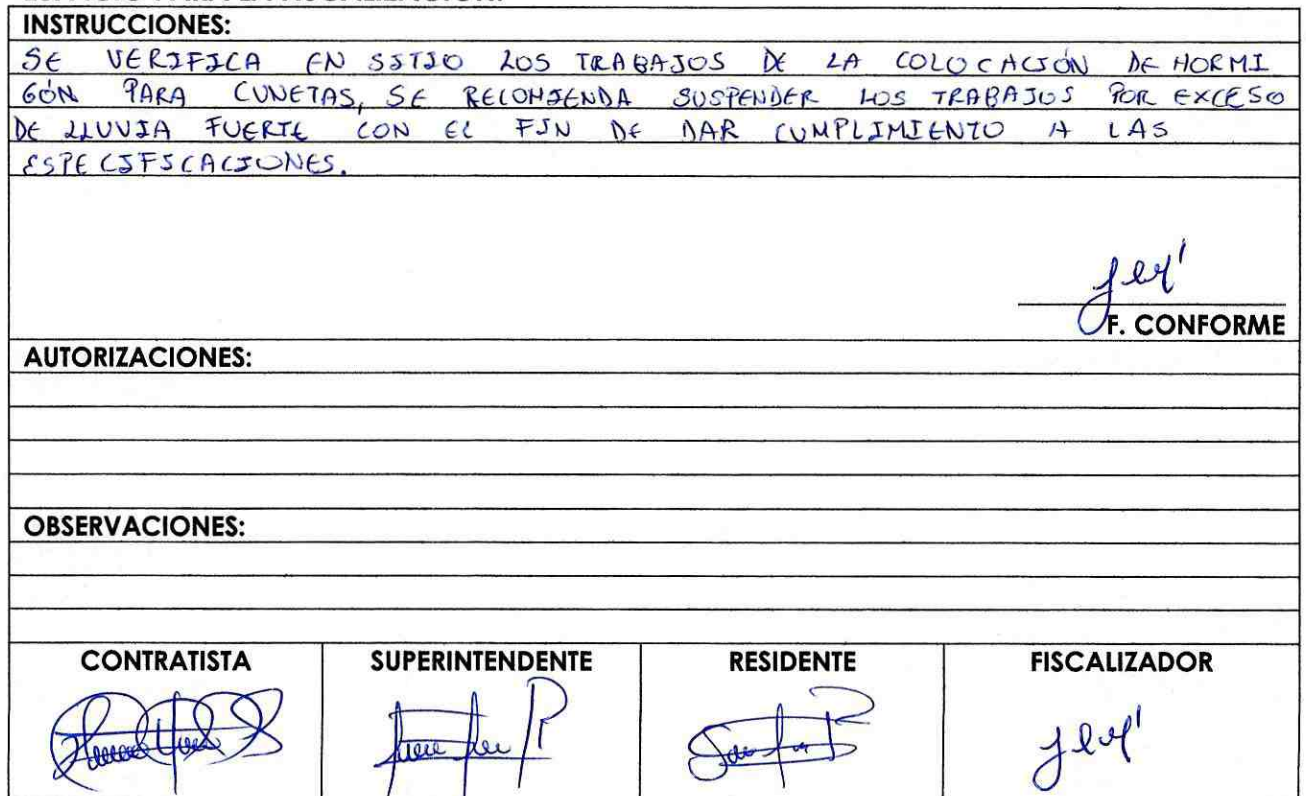 INSTRUCCIONES:
SE VERIFICA EN SITIO LOS TRABAJOS DE LA COLOCACIÓN DE HORMI
GÓN PARA CUNETAS, SE RECOMIENDA SUSPENDER LOS TRABAJOS POR EXCESO
DE LLUVIA FUERTE CON EL FIN DE DAR CUMPLIMIENTO A LAS
ESPECIFISCACIONES.
F. CONFORME
AUTORIZACIONES:
OBSERVACIONES:
CONTRATISTA SUPERINTENDENTE RESIDENTE FISCALIZADOR